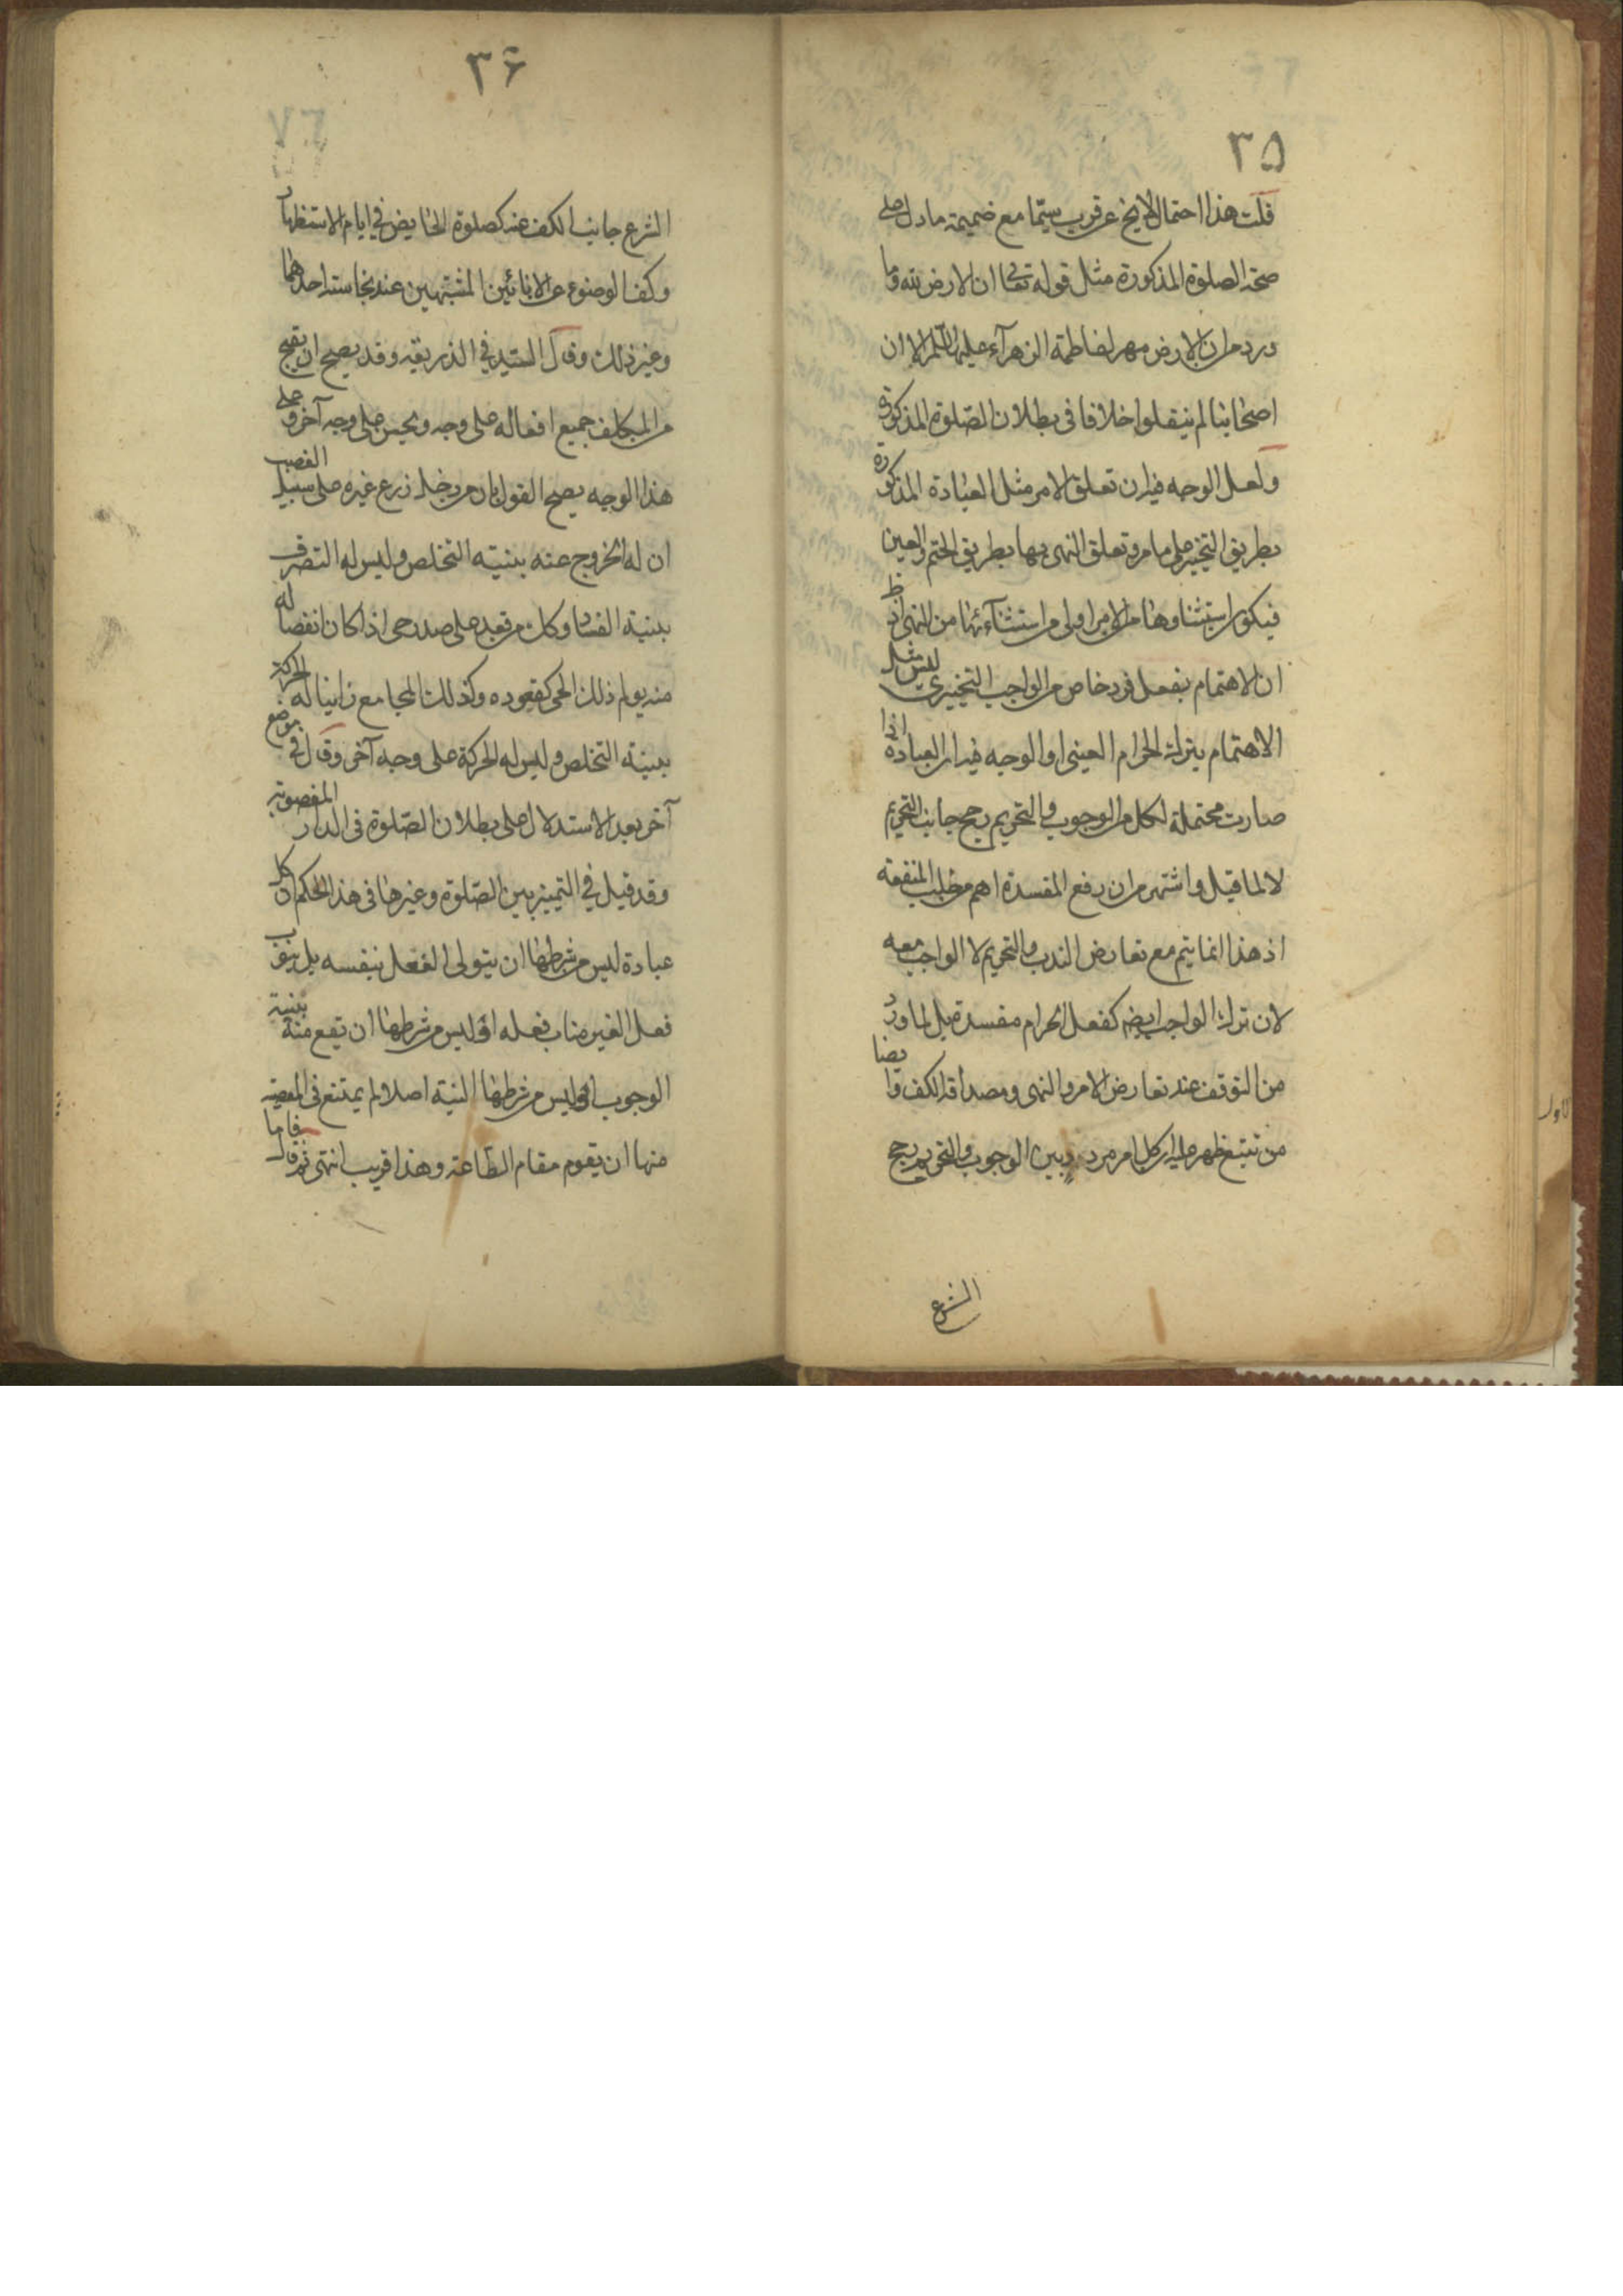 ٣۵
قلت هذا احتمال لا يخ عن قرب سيّما مع ضميمة ما دل على
صحة الصلوة المذكورة مثل قوله تعالى ان الارض لله وما
ورد من ان الارض مهر لفاطمة الزهرآء عليها السلم الا ان
اصحابنا لم ينقلوا خلافا في بطلان الصّلوة المذكورة
ولعل الوجه فيه ان تعلق الامر مثل العبادة المذكورة
بطريق التخيير على ما مر وتعلق النهى بها بطريق الحتم والعين
فيكون استثناوها من الامر اولى من استثنآئها من النهى اذ ظ
ان الاهتمام بفعل فرد خاص من الواجب التخييري ليس مثل
الاهتمام بترك الحرام العينى او الوجه فيه ان العبادة اذا
صارت محتملة لكل من الوجوب والتحريم يرجح جانب التحريم
لا لما قيل واشتهر من ان رفع المفسدة اهم من جلب المنفعة
اذ هذا انما يتم مع تعارض الندب والتحريم لا الواجب معه
لان ترك الواجب ايضه كفعل الحرام مفسدة بل لما ورد
من التوقف عند تعارض الامر والنهى ومصداقه الكف وايضا
من تتبع ظهر عليه ان كل امر مردد بين الوجوب والتحريم يرجح
الشرع
٣۶
الشرع جانب الكف عنه كصلوة الحايض في ايام الاستظهار
وكف الوضوء عن الانائين المشتبهين عند نجاسته احدهما
وغير ذلك وقال السّيد في الذريعة وقد يصح ان تقبح
من المكلف جميع افعاله على وجه وبحسن على وجه آخر وعلى
هذا الوجه يصح القول بان من دخل زرع غيره على سبيل الغصب
ان له الخروج عنه بنية التخلص وليس له التصرف
بنية الفساد وكل من قعد على صدر حى اذا كان انفصاله
منه يولم ذلك الحى كقعوده وكذلك المجامع زانيا له الحركة
بنية التخلص وليس له الحركة على وجه آخر وقال في موضع
آخر بعد الاستدلال على بطلان الصّلوة في الدار المغصوبة
وقد قيل في التمييز بين الصّلوة وغيرها في هذا الحكم ان كل
عبادة ليس من شرطها ان يتولى الفعل بنفسه بل ينوب
فعل الغير مناب فعله او ليس من شرطها ان تقع منه بنية
الوجوب او ليس من شرطها النية اصلا لم يمتنع في المعصية
منها ان يقوم مقام الطّاعة وهذا قريب انتهى ثم قال فاما